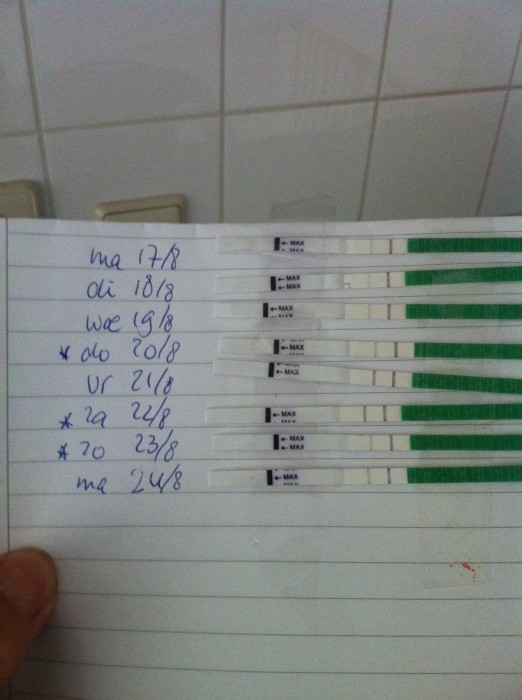 ma 17/8 ← MAX
di 18/8 ← MAX ← MAX
woe 19/8 ← MAX
* do 20/8 ← MAX
vr 21/8 ← MAX
* za 22/8 ← MAX
* zo 23/8 ← MAX
ma 24/8 ← MAX